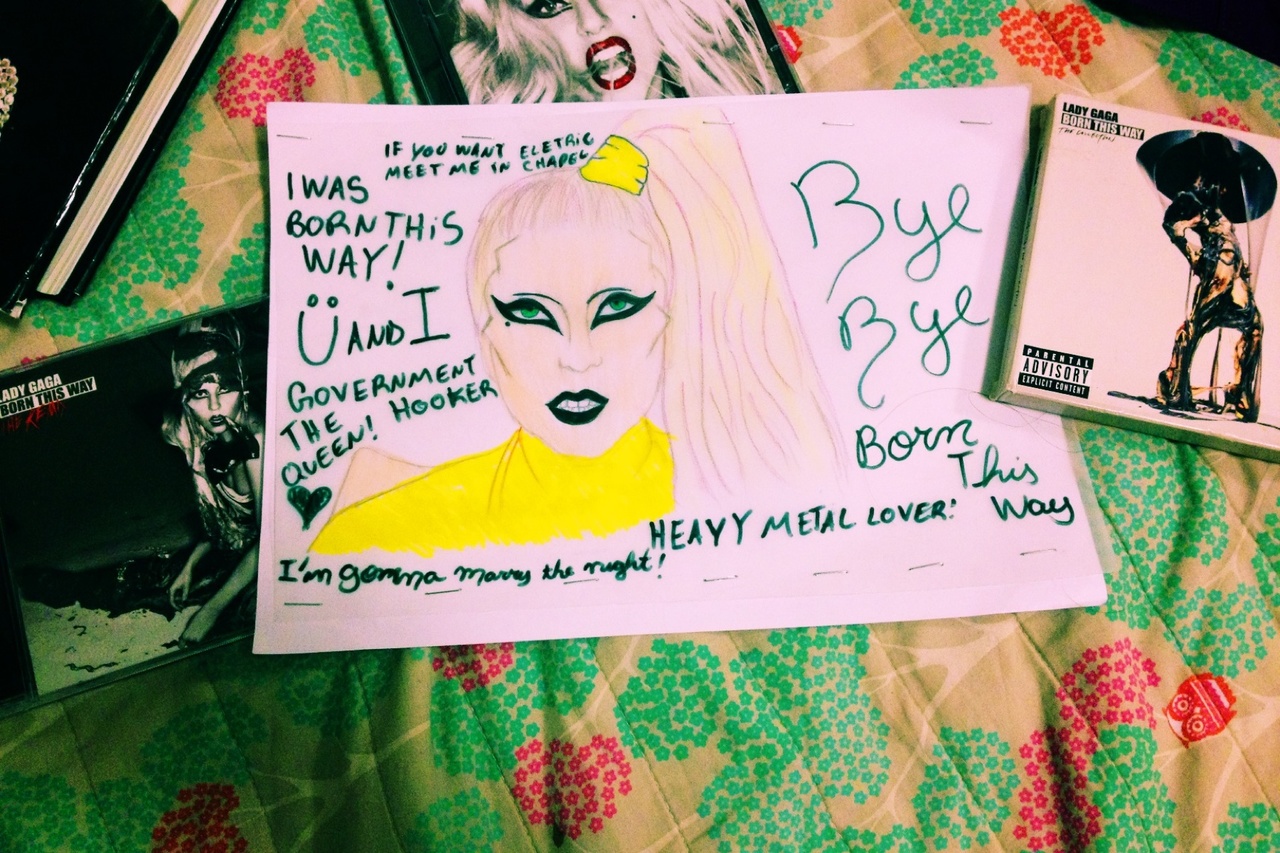 IF YOU WANT ELETRIC
MEET ME IN CHAPEL
I WAS
BORN THiS
WAY!
Ü AND I
GOVERNMENT
HOOKER
THE
QUEEN!
I'm gonna marry the night!
HEAVY METAL LOVER!
Bye
Bye
Born
This
Way
LADY GAGA
BORN THIS WAY
THE COLLECTION
PARENTAL
ADVISORY
EXPLICIT CONTENT
LADY GAGA
BORN THIS WAY
THE REMIX